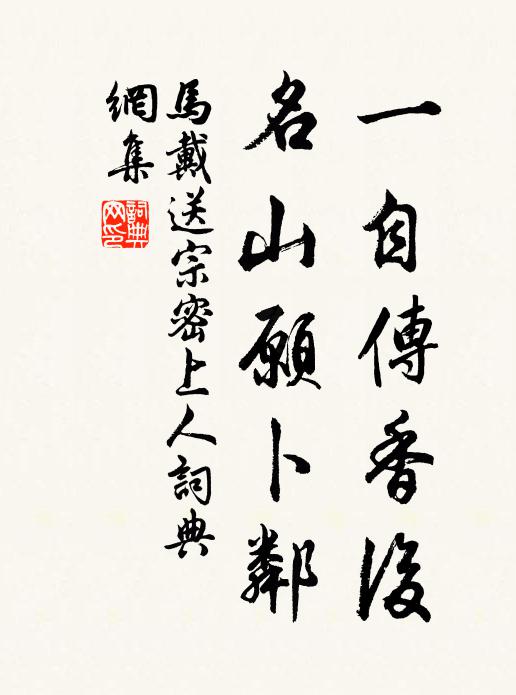 一自傳香後
名山願卜鄰
馬戴送宗密上人詞典
網集
詞典网印